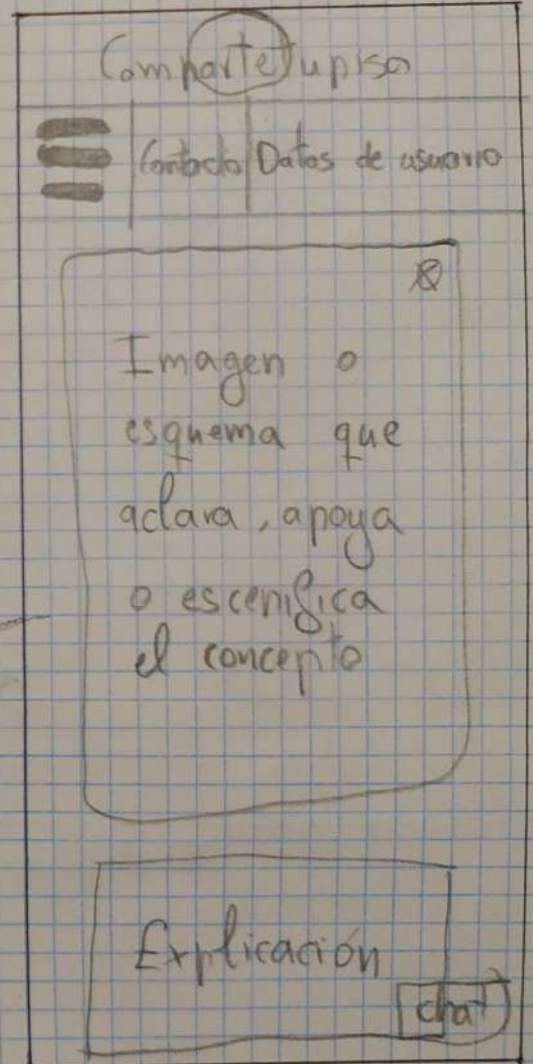 Compartetupiso
Contacto Datos de usuario
Imagen o
esquema que
aclara, apoya
o escenifica
el concepto
Explicación
chat